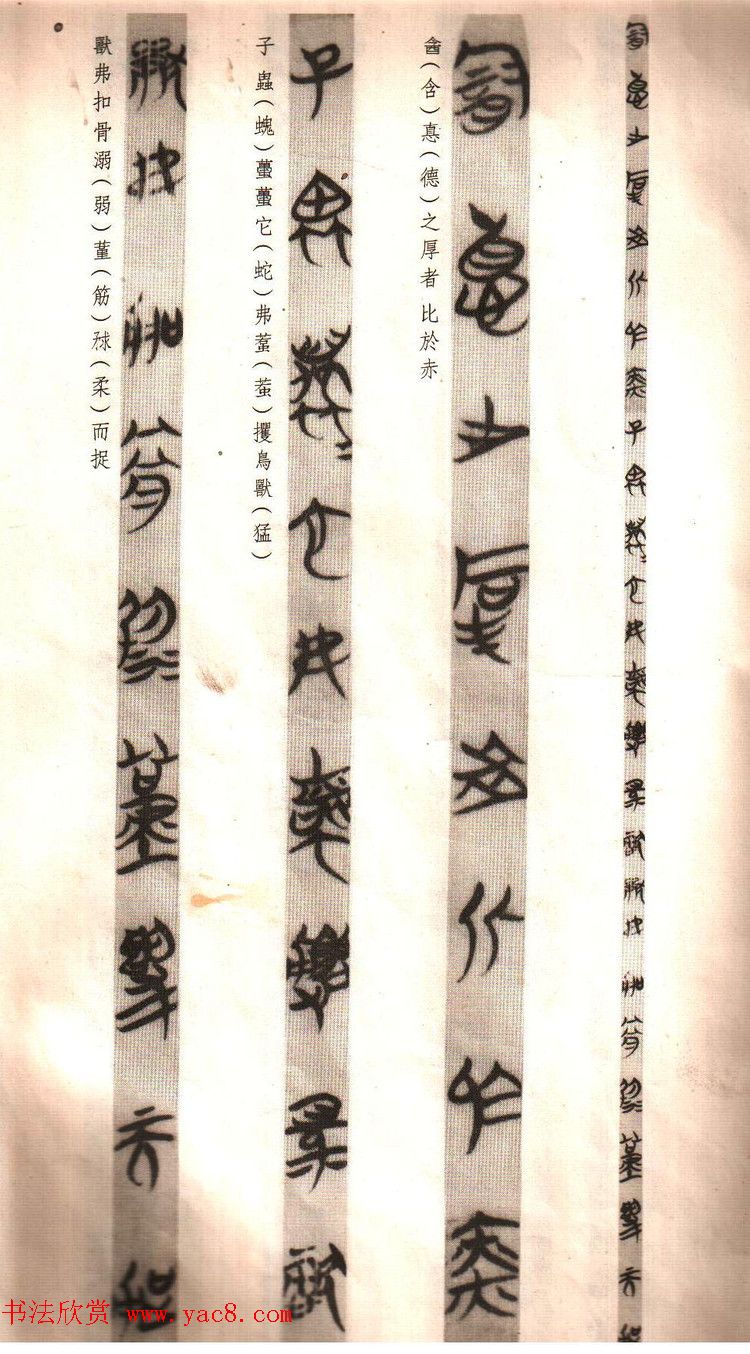 酓（含）悳（德）之厚者比於赤
子蟲（螝）蠆蠆它（蛇）弗蠚（䖧）攫鳥獸（猛）
獸弗扣骨溺（弱）菫（筋）㭝（柔）而捉
书法欣赏 www.yac8.com